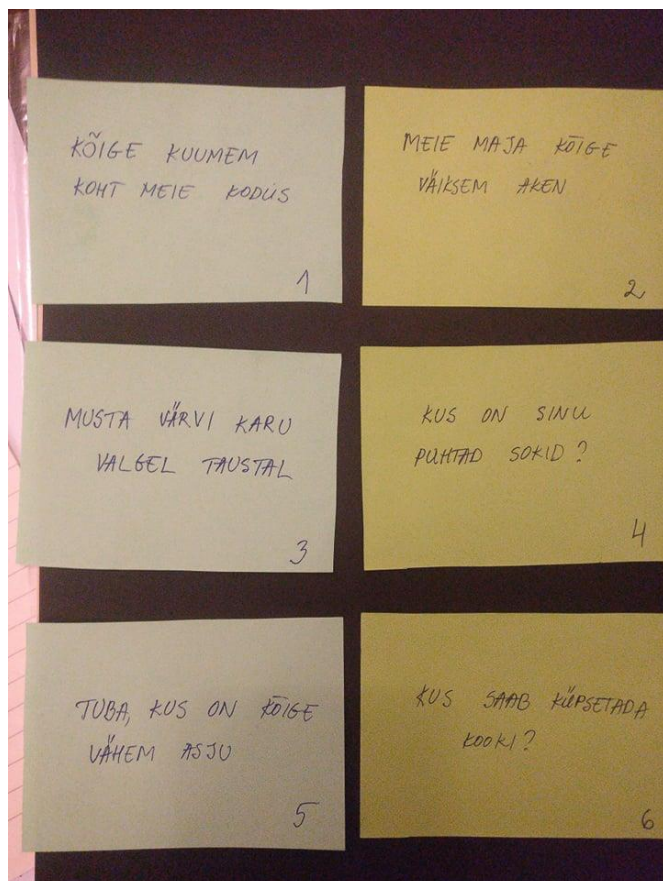 KÕIGE KUUMEM
KOHT MEIE KODUS
1
MEIE MAJA KÕIGE
VÄIKSEM AKEN
2
MUSTA VÄRVI KARU
VALGEL TAUSTAL
3
KUS ON SINU
PUHTAD SOKID?
4
TUBA, KUS ON KÕIGE
VÄHEM ASJU
5
KUS SAAB KÜPSETADA
KOOKI?
6